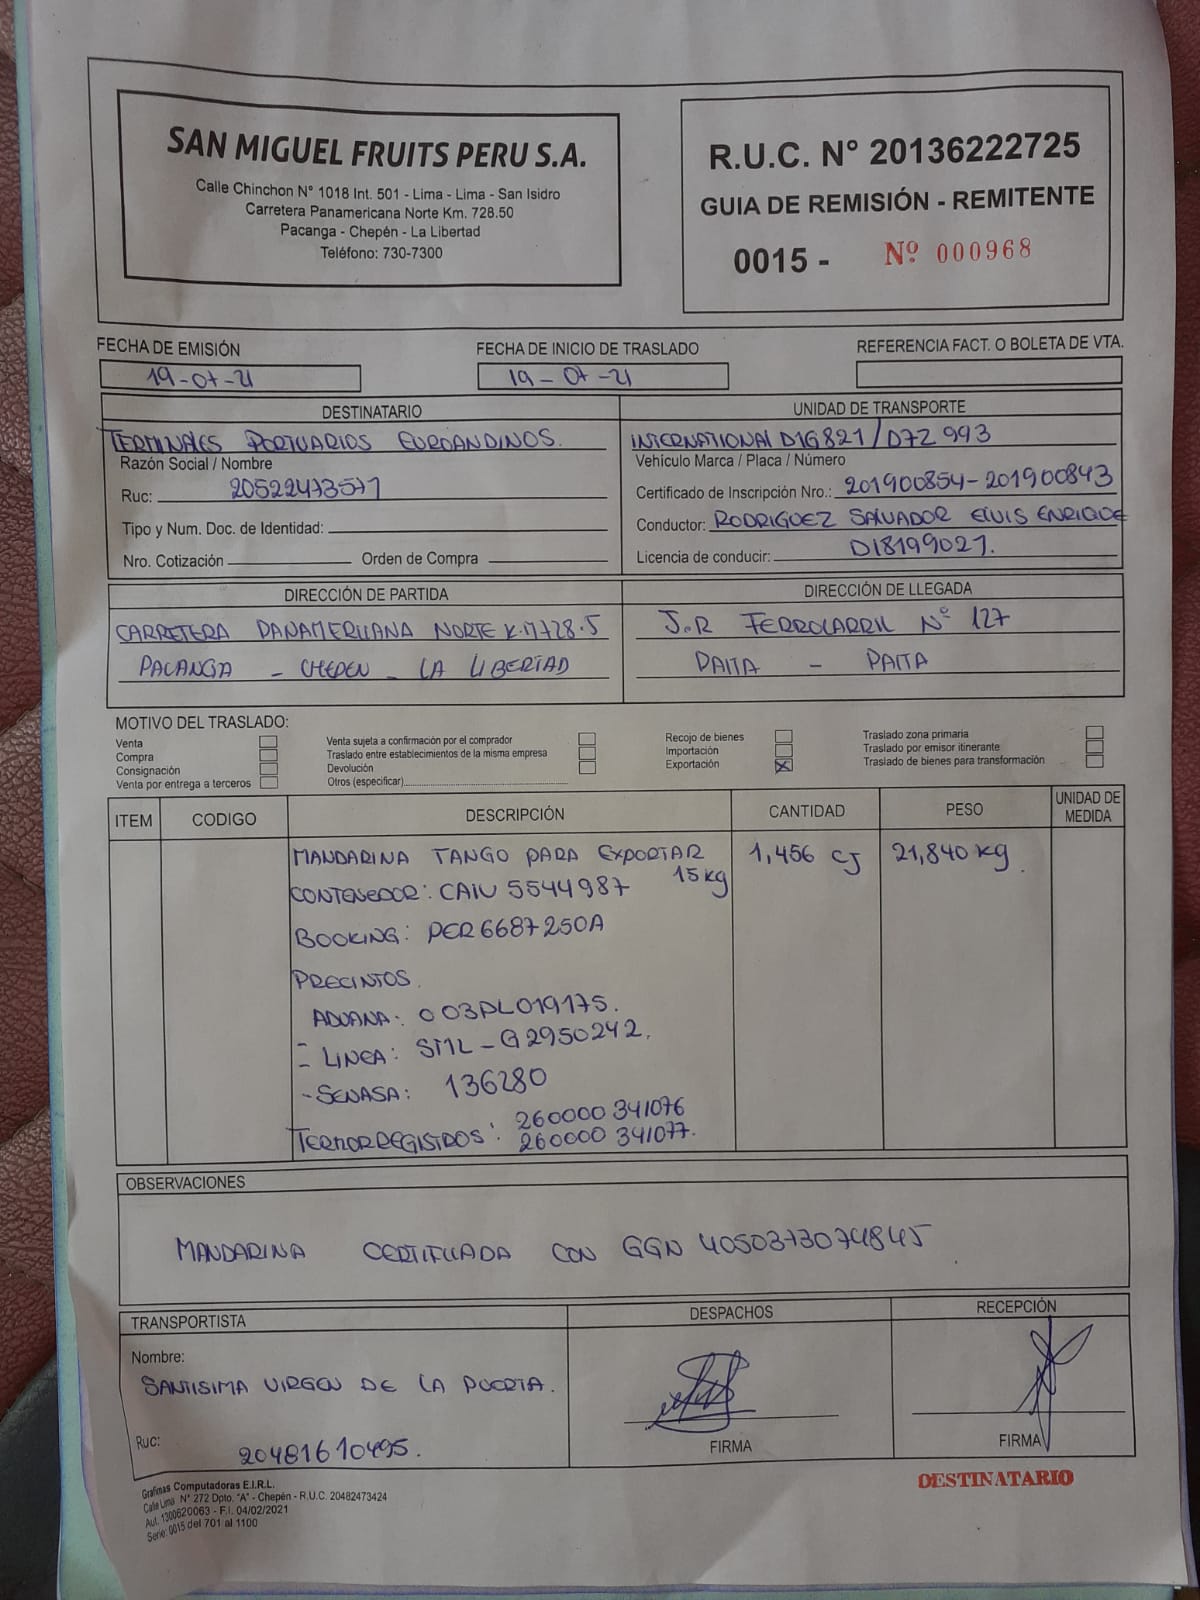 SAN MIGUEL FRUITS PERU S.A.
Calle Chinchon N° 1018 Int. 501 - Lima - Lima - San Isidro
Carretera Panamericana Norte Km. 728.50
Pacanga - Chepén - La Libertad
Teléfono: 730-7300
R.U.C. N° 20136222725
GUIA DE REMISIÓN - REMITENTE
0015 - Nº 000968
FECHA DE EMISIÓN
19-07-21
FECHA DE INICIO DE TRASLADO
19-07-21
REFERENCIA FACT. O BOLETA DE VTA.
DESTINATARIO
TERMINALES PORTUARIOS EUROANDINOS.
Razón Social / Nombre
Ruc: 20522473571
Tipo y Num. Doc. de Identidad:
Nro. Cotización Orden de Compra
UNIDAD DE TRANSPORTE
INTERNATIONAL D1G821/D7Z993
Vehículo Marca / Placa / Número
Certificado de Inscripción Nro.: 201900854-201900843
Conductor: RODRIGUEZ SALVADOR ELVIS ENRIQUE
Licencia de conducir: D18199021.
DIRECCIÓN DE PARTIDA
CARRETERA PANAMERICANA NORTE K.M728.5
PACANGA - CHEPEN - LA LIBERTAD
DIRECCIÓN DE LLEGADA
J.R FERROCARRIL N° 127
PAITA - PAITA
MOTIVO DEL TRASLADO:
Venta
Compra
Consignación
Venta por entrega a terceros
Venta sujeta a confirmación por el comprador
Traslado entre establecimientos de la misma empresa
Devolución
Otros (especificar)
Recojo de bienes
Importación
Exportación X
Traslado zona primaria
Traslado por emisor itinerante
Traslado de bienes para transformación
ITEM CODIGO DESCRIPCIÓN CANTIDAD PESO UNIDAD DE MEDIDA
MANDARINA TANGO PARA EXPORTAR 1,456 CJ 21,840 kg.
15 kg
CONTENEDOR: CAIU 5544987
BOOKING: PER6687250A
PRECINTOS.
ADUANA: 003PL019175.
- LINEA: SML-G2950242.
- SENASA: 136280
TERMORREGISTROS: 260000 341076
260000 341077.
OBSERVACIONES
MANDARINA CERTIFICADA CON GGN 4050373074845
TRANSPORTISTA
Nombre:
SANTISIMA VIRGEN DE LA PUERTA.
Ruc: 20481610495.
DESPACHOS
FIRMA
RECEPCIÓN
FIRMA
DESTINATARIO
Grafimas Computadoras E.I.R.L.
Calle Lima N° 272 Dpto. "A" - Chepén - R.U.C. 20482473424
Aut. 1300620063 - F.I. 04/02/2021
Serie: 0015 del 701 al 1100